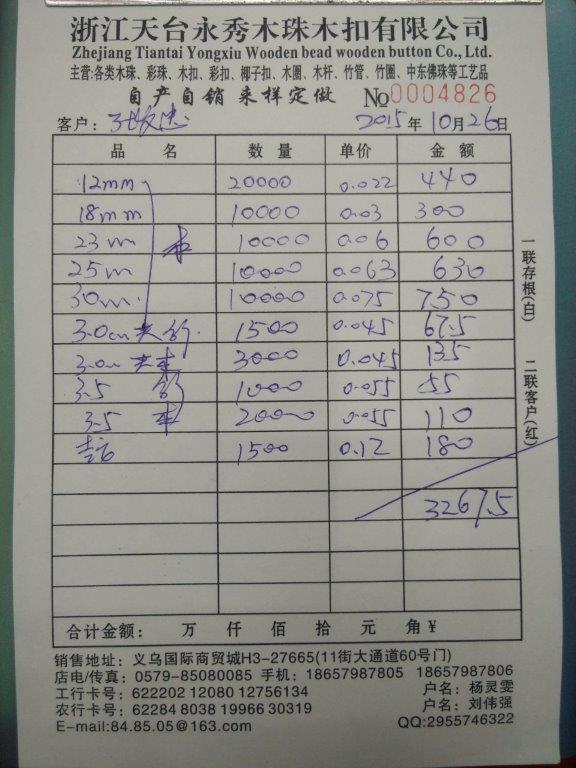 浙江天台永秀木珠木扣有限公司
Zhejiang Tiantai Yongxiu Wooden bead wooden button Co., Ltd.
主营:各类木珠、彩珠、木扣、彩扣、椰子扣、木圈、木杆、竹管、竹圈、中东佛珠等工艺品
自产自销 来样定做 No 0004826
客户： 2015年10月26日
品 名 数 量 单价 金 额
12mm 20000 0.022 440
18mm 10000 0.03 300
23m 木 10000 0.06 600
25m 10000 0.063 630
30m 10000 0.075 750
3.0cm 1500 0.045 67.5
3.0m 3000 0.045 135
3.5 1000 0.055 55
3.5 2000 0.055 110
1500 0.12 180
3267.5
合计金额： 万 仟 佰 拾 元 角 ¥
一联存根(白) 二联客户(红)
销售地址：义乌国际商贸城H3-27665(11街大通道60号门)
店电/传真：0579-85080085 手机：18657987805 18657987806
工行卡号：622202 12080 12756134 户名：杨灵雯
农行卡号：62284 8038 19966 30319 户名：刘伟强
E-mail:84.85.05@163.com QQ:2955746322